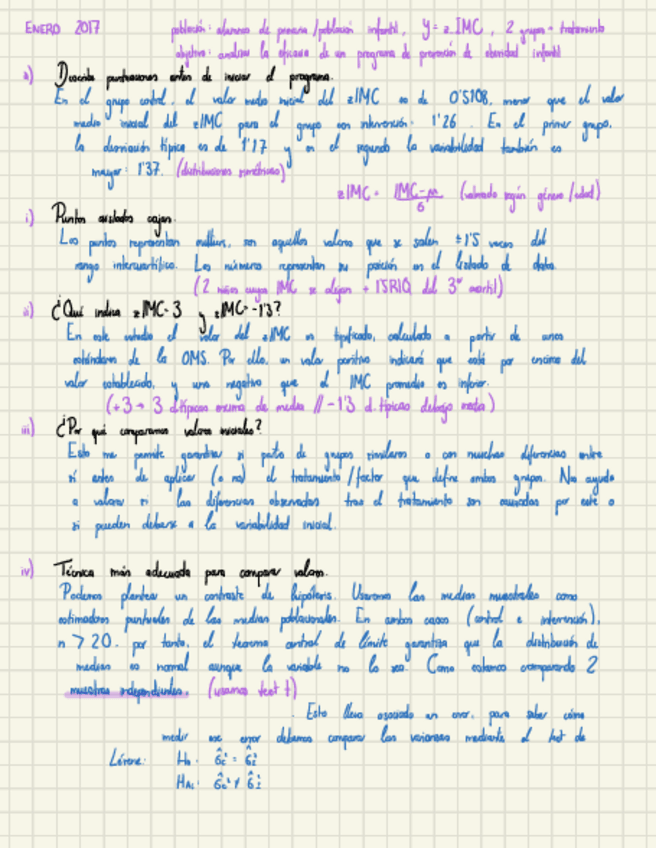 ENERO 2017 población: alumnos de primaria / población infantil, Y = z IMC, 2 grupos - tratamiento
objetivo: analizar la eficacia de un programa de prevención de obesidad infantil
a) Describe puntuaciones antes de iniciar el programa.
En el grupo control, el valor medio inicial del zIMC es de 0'5108, menor que el valor
medio inicial del zIMC para el grupo con intervención: 1'26. En el primer grupo,
la desviación típica es de 1'17 y en el segundo la variabilidad también es
mayor: 1'37. (distribuciones simétricas)
zIMC = IMC-μ / σ (valorado según género/edad)
i) Puntos aislados cajas.
Los puntos representan outliers, son aquellos valores que se salen ±1'5 veces del
rango intercuartílico. Los números representan su posición en el listado de datos.
(2 niños cuyo IMC se alejan + 1'5RIQ del 3er cuartil)
ii) ¿Qué indica zIMC=3 y zIMC=-1'3?
En este estudio el valor del zIMC es tipificado, calculado a partir de unos
estándares de la OMS. Por ello, un valor positivo indicará que está por encima del
valor establecido, y uno negativo que el IMC promedio es inferior.
(+3 → 3 d.típicas encima de media // -1'3 d.típicas debajo media)
iii) ¿Por qué comparamos valores iniciales?
Esto me permite garantizar si parto de grupos similares o con muchas diferencias entre
sí antes de aplicar (o no) el tratamiento/factor que define ambos grupos. Nos ayuda
a valorar si las diferencias observadas tras el tratamiento son causadas por este o
si pueden deberse a la variabilidad inicial.
iv) Técnica más adecuada para comparar valores.
Podemos plantear un contraste de hipótesis. Usaremos las medias muestrales como
estimadores puntuales de las medias poblacionales. En ambos casos (control e intervención),
n > 20. por tanto, el teorema central de límite garantiza que la distribución de
medias es normal aunque la variable no lo sea. Como estamos comparando 2
muestras independientes. (usamos test t)
Esto lleva asociado un error, para saber cómo
medir ese error debemos comparar las varianzas mediante el test de
Lévene: H₀: σ̂c² = σ̂i²
HA: σ̂c² ≠ σ̂i²